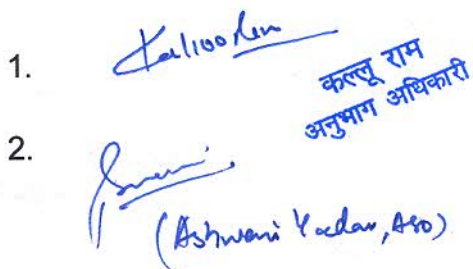 1. Kalloo Ram
कल्लू राम
अनुभाग अधिकारी
2.
(Ashwani Yadav, ASO)